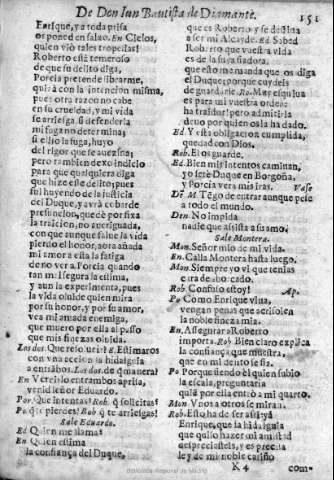 De Don Iuan Bautista de Diamante. 151
Enrique, ya toda prisa
os poned en salvo. En Cielos,
quien viò tales tropelias!
Roberto está temeroso
de que su delito diga,
Porcia pretende librarme,
quizà con la intencion misma,
pues otra razon no cabe
en su crueldad, y mi vida
se arriesga, si defenderla
mi fuga no determina;
si elijo la fuga, huyo
del rigor que se avezina;
pero tambien dexo indicio
para que qualquiera diga
que hize este delito; pues
solo huyendo de la justicia
del Duque, y avrà cobarde
presuncion, que dè por fixa
la traicion, no averiguada,
con que aunque salve la vida
pierdo el honor, aora añada
mi amor à esta la fatiga
de no ver à Porcia quando
tan mal segura la estima,
y aun la experimenta, pues
la vida olvide quien mira
por su honor, y por su amor,
vea mi amada enemiga,
que muero por ella al passo
que mis finezas olvida.
Los dos. Què resolveis? En. Estimaros
con vna accion la hidalguia
à entrambos. Los dos. de què manera?
En Vereislo entrambos aprisa,
venid señor Eduardo.
Por. Què intentas? Rob. què solicitas?
Po què pierdes! Rob què te arriesgas!
Sale Eduardo.
Ed Quien me llama?
En Quien estima
la confiança del Duque,
que es Roberto y se destina
à ser mi Alcayde. Ed Sabed
Roberto que vuestra vida
es de la suya fiadora,
que esto me manda que os diga
el Duque; porque cuydeis
de guardarle. Ro. Muy esquiva
es para mi vuestra orden:
ha traidor! pero admitirla
devo por quien os la ha dado.
Ed. Y esta obligacion cumplida,
quedad con Dios.
Rob. El os guarde.
Ed. Bien mis intentos caminan,
yo serè Duque en Borgoña,
y Porcia verà mis iras. Vase
De M. Tẽgo de entrar aunque pese
à todo el mundo.
Den. No impida
nadie que assista à su amo.
Sale Montera.
Mon. Señor mio de mi vida.
En. Calla Montera hasta luego.
Mon. Siempre yo vi que tenias
cara de ahorcado.
Rob Confuso estoy! Ap.
Po Como Enrique viva,
vengan penas que acrisolen
la noble fineza mia.
En. Assegurar à Roberto
importa. Rob. Bien claro explica
la confiança que muestra,
que en mi delito se fia.
Po Porque siendo èl quien subio
la escala, preguntaria
què por ella entrò à mi quarto.
Mon. Vnos à otros se miran.
Rob. Esto ha de ser assi: ya
Enrique, que la hidalguia
que quiso hazer mi amistad
despreciasteis, y es precisa
ley de mi noble cariño
K 4 com-
Biblioteca Regional de Madrid